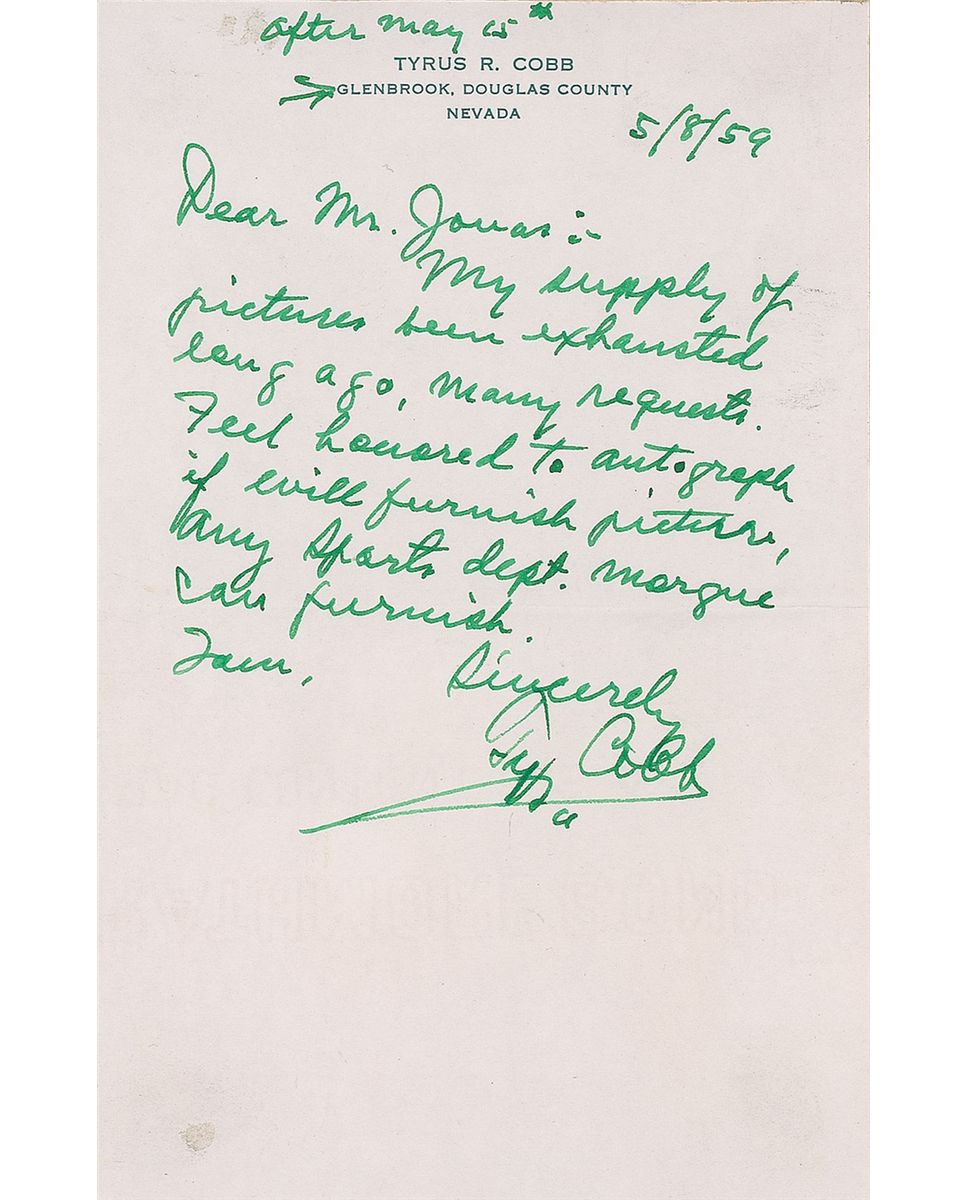 after May 15th
TYRUS R. COBB
GLENBROOK, DOUGLAS COUNTY
NEVADA
5/8/59
Dear Mr. Jonas :-
My supply of
pictures been exhausted
long ago, many requests.
Feel honored to autograph
if will furnish picture,
any sports dept. morgue
can furnish.
I am, Sincerely
Ty Cobb